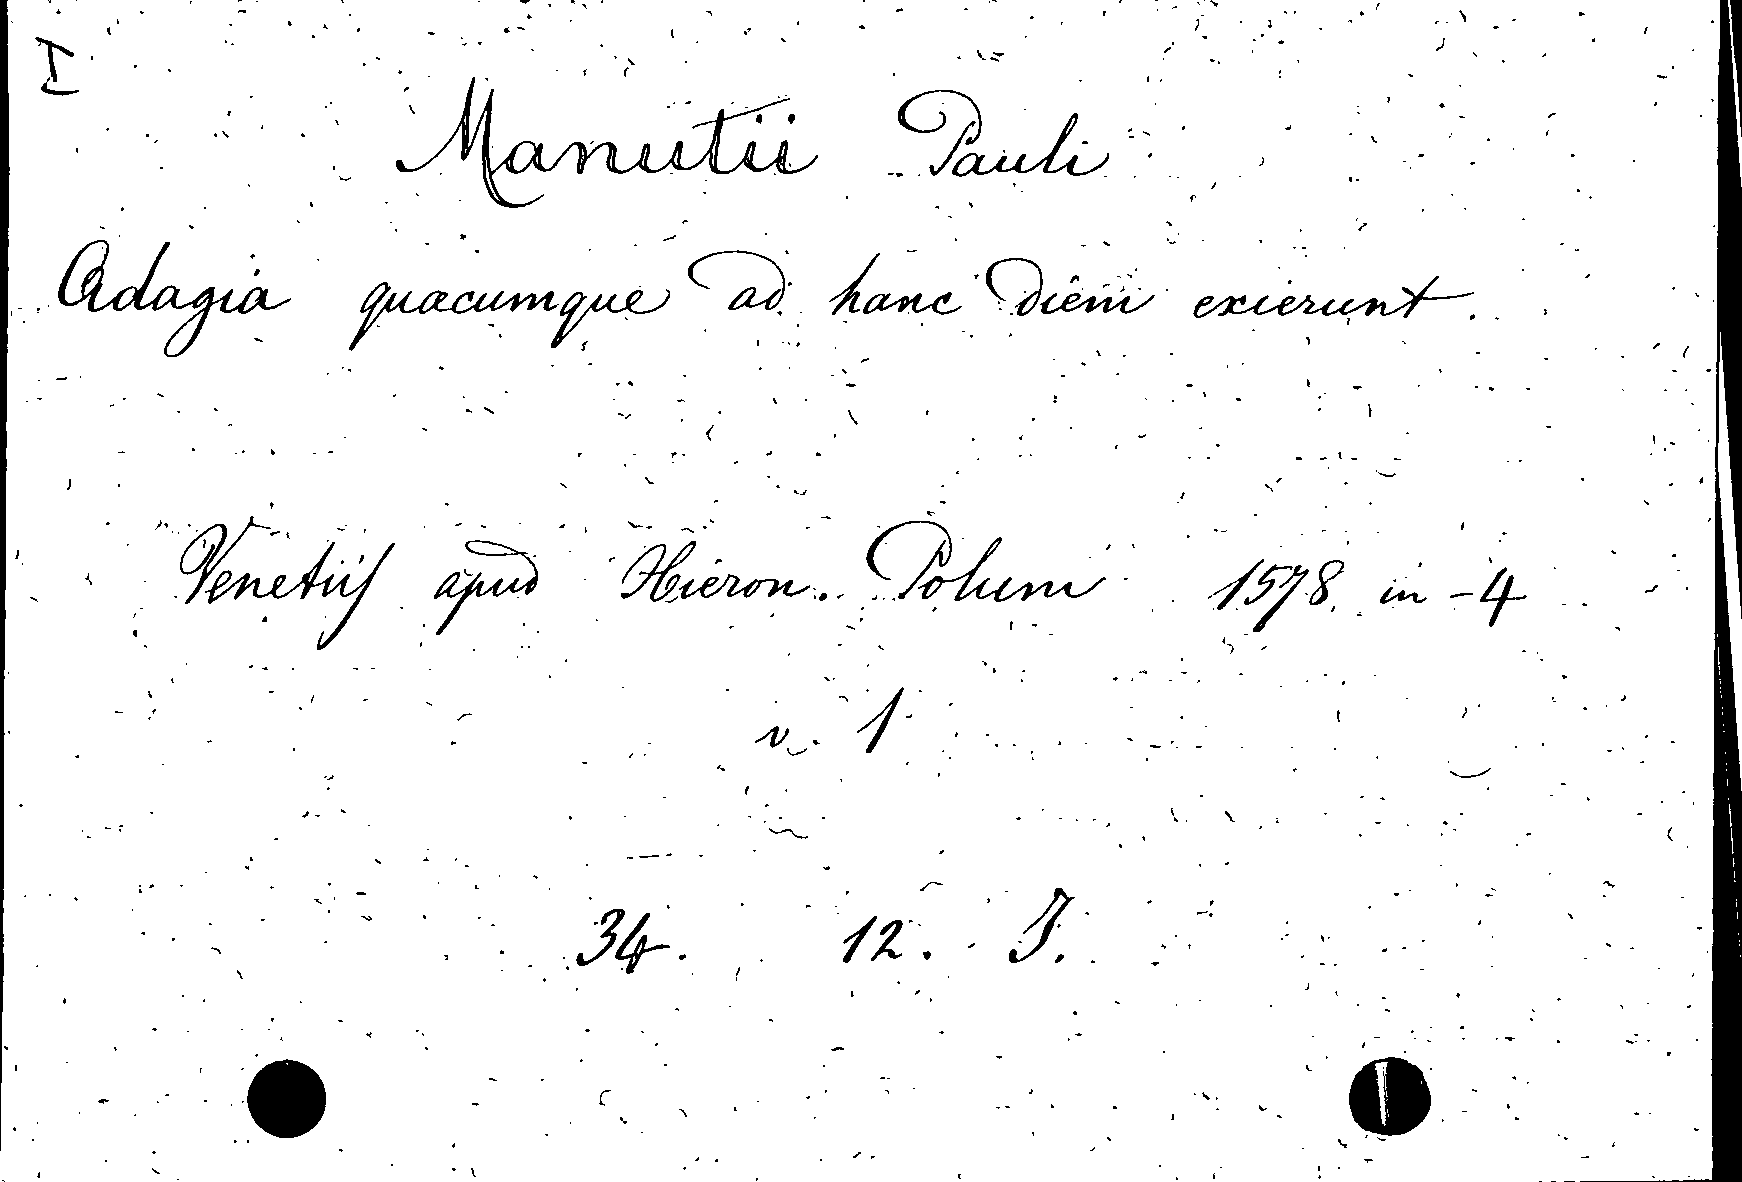 I
Manutii Pauli
Adagia quæcumque ad hanc diem exierunt.
Venetiis apud Hieron. Polum 1578 in-4
v. 1
34. 12. I.